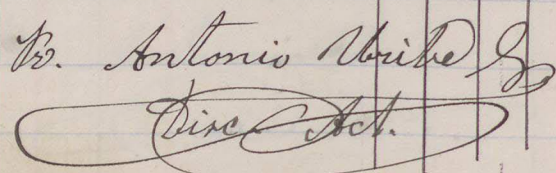 Antonio Uribe G
Direc. Act.